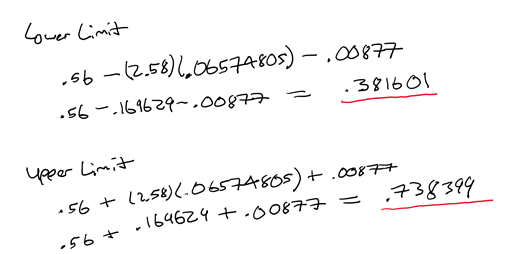 Lower Limit
.56 - (2.58)(.06574805) - .00877
.56 - .169629 - .00877 = .381601
Upper Limit
.56 + (2.58)(.06574805) + .00877
.56 + .169629 + .00877 = .738399